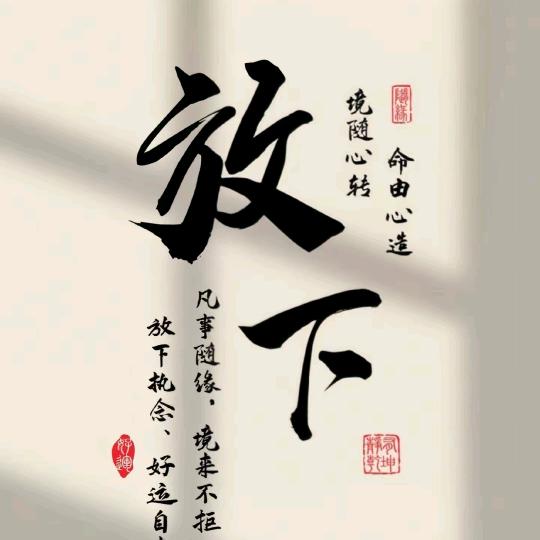 放下
命由心造
境随心转
凡事随�，境来不拒
放下执念、好运自
随缘
好運